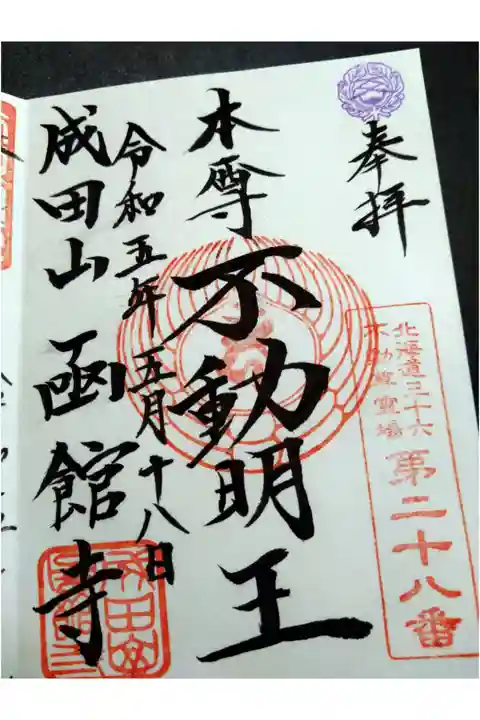 奉拝
北海道三十六
不動尊霊場
第二十八番
本尊 不動明王
令和五年 五月十八日
成田山 函館寺